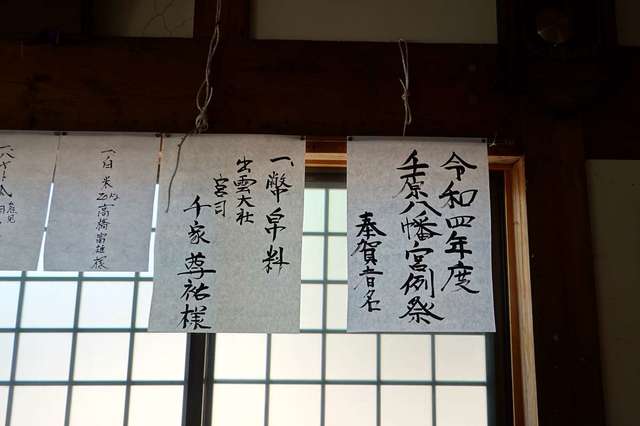 令和四年度
壬原八幡宮例祭
奉賀者名
一、幣帛料
出雲大社
宮司
千家尊祐様
一、白米
高橋富雄様